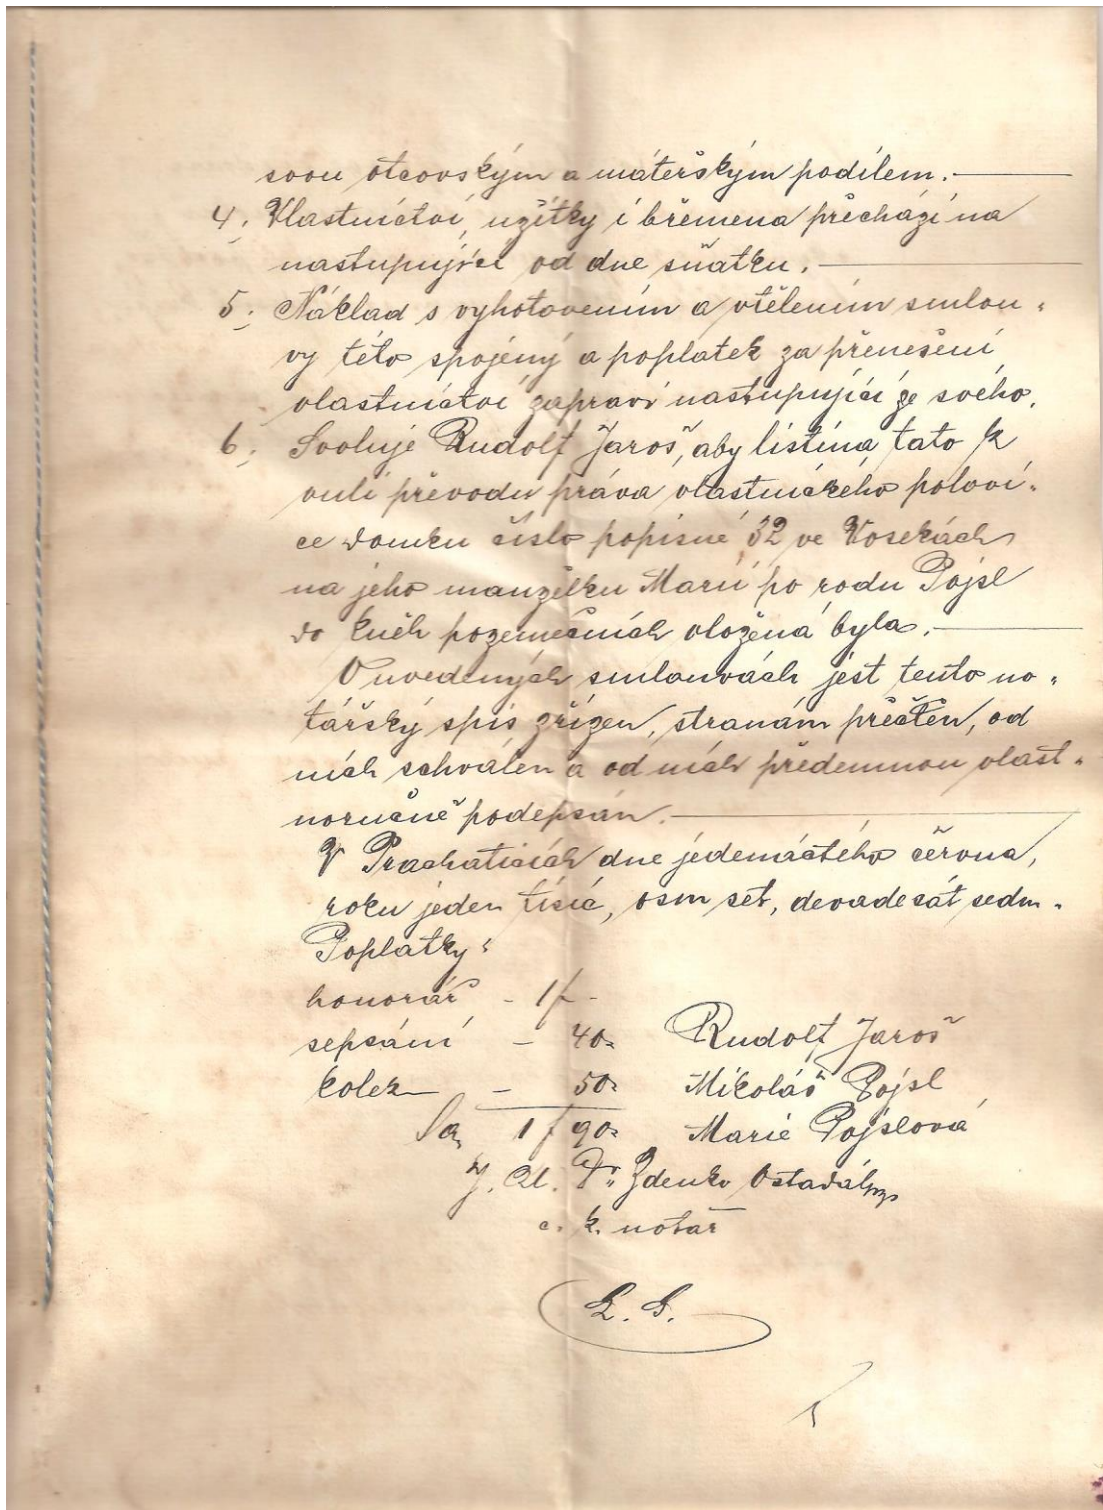 svou otcovským a mateřským podílem.
4; Vlastnictví, užitky i břemena přechází na
nastupující od dne sňatku.
5; Náklad s vyhotovením a vtělením smlou-
vy této spojený a poplatek za přenešení
vlastnictví zapraví nastupující ze svého.
6; Svoluje Rudolf Jaroš, aby listina tato k
vuli převodu práva vlastnického polovi-
ce domku číslo popisné 32 ve Vosekách
na jeho manželku Marii po rodu Pojsl
do kněh pozemečních vložená byla.
O uvedených smlouvách jest tento no-
tářský spis zřízen, stranám přečten, od
nich schválen a od nich předemnou vlast-
noručně podepsán.
V Prachaticích dne jedenáctého června,
roku jeden tisíc, osm set, devadesát sedm.
Poplatky:
honorář - 1f -
sepsání - 40 Rudolf Jaroš
kolek - 50 Mikoláš Pojsl
Sa, 1f 90 Marie Pojslová
J. U. Dr. Zdenko Ostadál
c. k. notář
L. S.